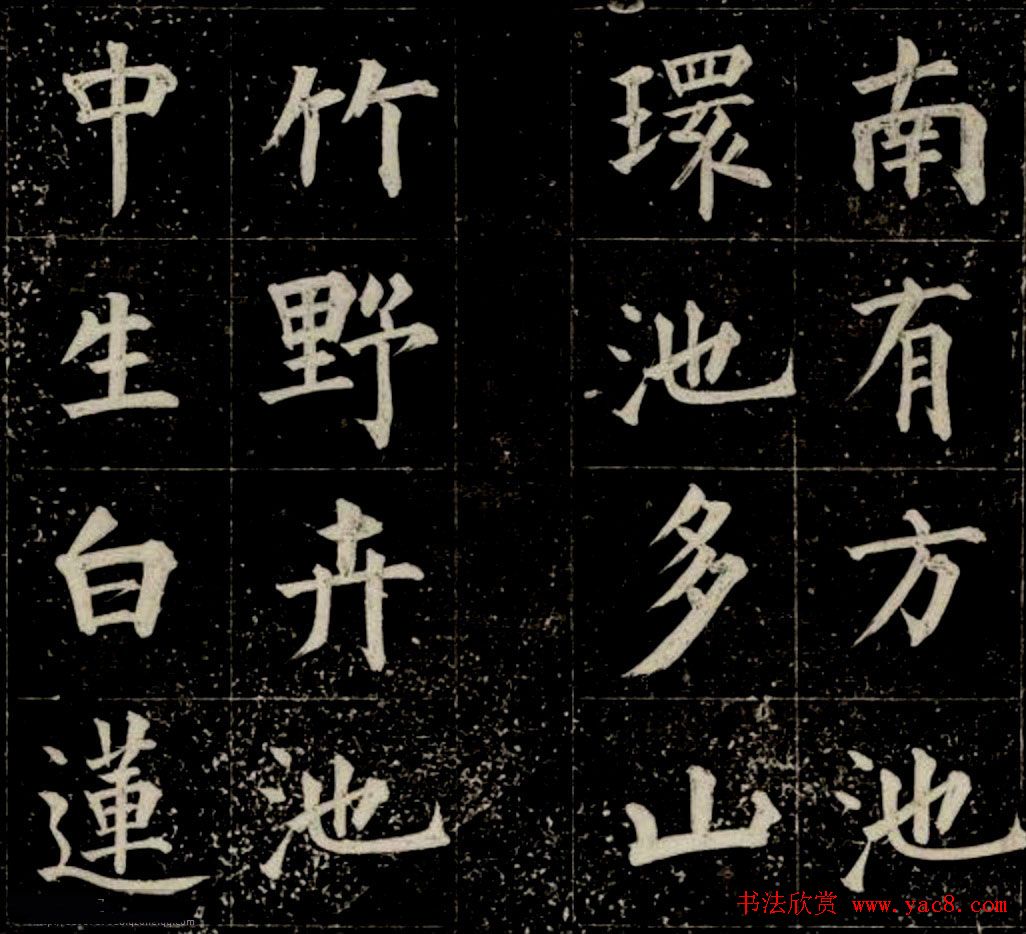 南有方池
環池多山
竹野卉池
中生白蓮
书法欣赏 www.yac8.com